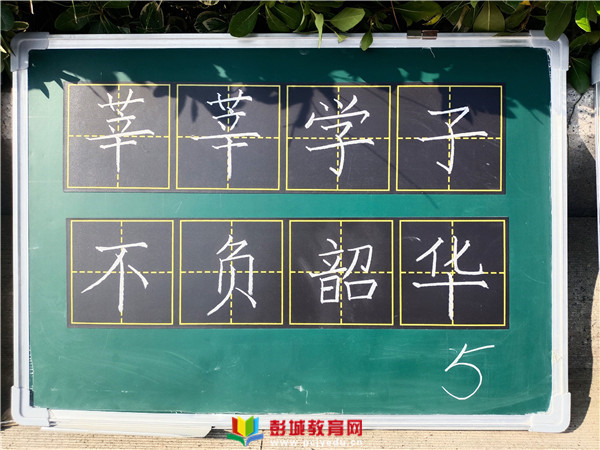 莘莘学子
不负韶华
5
彭城教育网
www.pcjyedu.cn